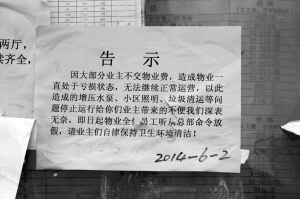 两厅，
齐全，
告 示
因大部分业主不交物业费，造成物业一
直处于亏损状态，无法继续正常运营，以此
造成的增压水泵、小区照明、垃圾清运等问
题停止运行给你们业主带来的不便我们深表
无奈，即日起物业全体员工听从总部命令放
假，请业主们自律保持卫生环境清洁！
2014-6-2